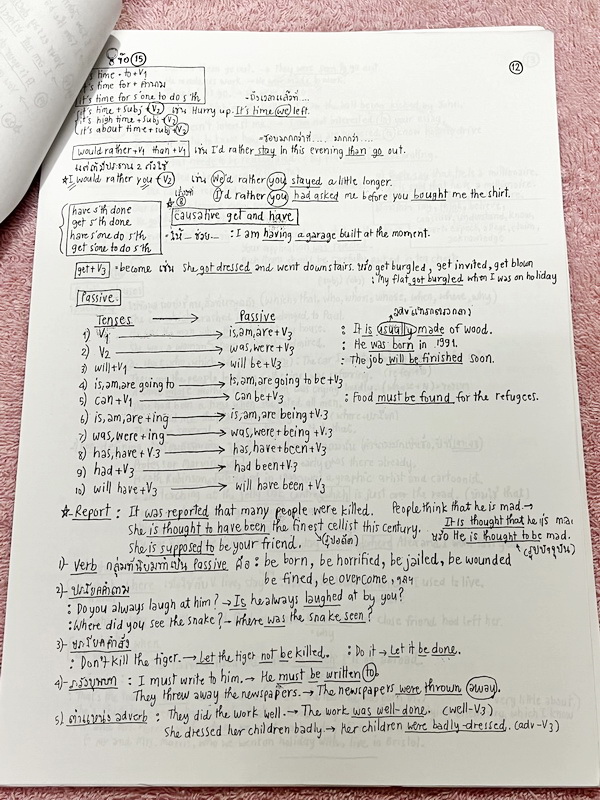 ข้อ 15
12
it's time + to + V1
it's time for + คำนาม
it's time for s'one to do s'th
it's time + subj + V2 เช่น Hurry up. It's time we left.
it's high time + subj + V2
it's about time + subj + V2
would rather + V1 than + V1 เช่น I'd rather stay in this evening than go out.
แต่ถ้ามีประธาน 2 ตัวใช้
☆ I would rather you + V2 เช่น We'd rather you stayed a little longer.
I'd rather you had asked me before you bought me the shirt.
have s'th done
get s'th done
have s'one do s'th
get s'one to do s'th
causative get and have
: I am having a garage built at the moment.
get + V3 = become เช่น She got dressed and went downstairs. หรือ get burgled, get invited, get blown
: My flat got burgled when I was on holiday
Passive.
Tenses → Passive
1) V1 → is, am, are + V3 : It is usually made of wood.
2) V2 → was, were + V3 : He was born in 1991.
3) will + V1 → will be + V3 : The job will be finished soon.
4) is, am, are going to → is, am, are going to be + V3
5) can + V1 → can be + V3 : Food must be found for the refugees.
6) is, am, are + ing → is, am, are being + V.3
7) was, were + ing → was, were + being + V.3
8) has, have + V.3 → has, have + been + V.3
9) had + V.3 → had been + V.3
10) will have + V3 → will have been + V3
☆ Report : It was reported that many people were killed. People think that he is mad. →
She is thought to have been the finest cellist this century. It is thought that he is mad
She is supposed to be your friend. (รูปอดีต) หรือ He is thought to be mad.
(รูปปัจจุบัน)
1)- Verb กลุ่มที่นิยมทำเป็น Passive คือ : be born, be horrified, be jailed, be wounded
be fined, be overcome, ฯลฯ
2)- ประโยคคำถาม
: Do you always laugh at him? → Is he always laughed at by you?
: Where did you see the snake? → Where was the snake seen?
3)- ประโยคคำสั่ง
: Don't kill the tiger. → Let the tiger not be killed. : Do it → Let it be done.
4)- : I must write to him. → He must be written to.
They threw away the newspapers. → The newspapers were thrown away.
5) ตำแหน่ง adverb : They did the work well. → The work was well-done. (well-V3)
She dressed her children badly. → Her children were badly-dressed. (adv-V3)